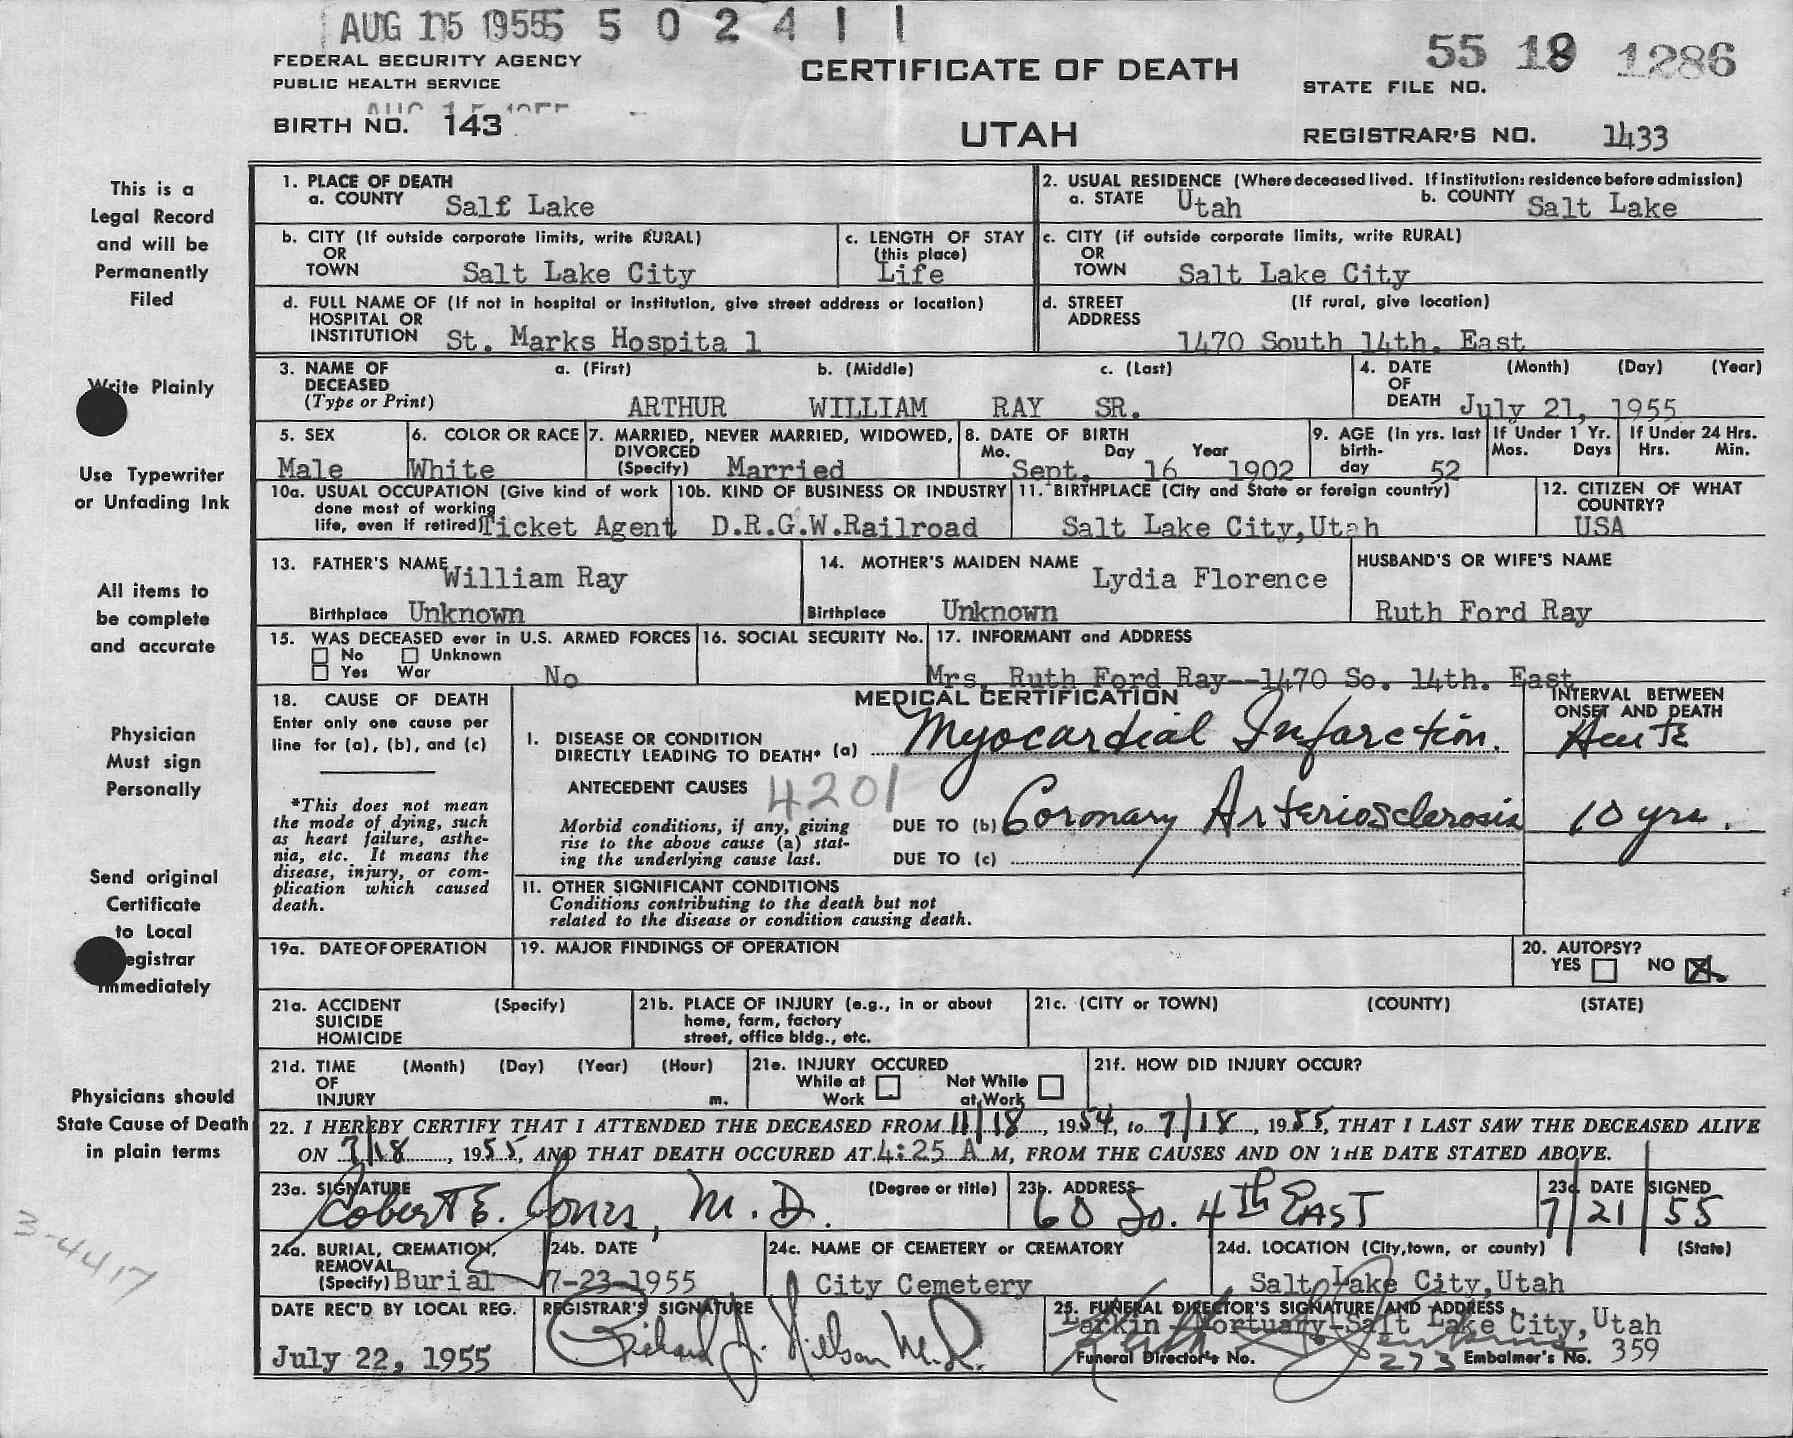 AUG 15 1955 5 0 2 4 1 1
FEDERAL SECURITY AGENCY
PUBLIC HEALTH SERVICE
CERTIFICATE OF DEATH
55 18 1286
STATE FILE NO.
AUG 15 1955
BIRTH NO. 143
UTAH
REGISTRAR'S NO. 1433
This is a
Legal Record
and will be
Permanently
Filed
Write Plainly
Use Typewriter
or Unfading Ink
All items to
be complete
and accurate
Physician
Must sign
Personally
Send original
Certificate
to Local
egistrar
mmediately
Physicians should
State Cause of Death
in plain terms
3-4417
1. PLACE OF DEATH
a. COUNTY Salt Lake
2. USUAL RESIDENCE (Where deceased lived. If institution: residence before admission)
a. STATE Utah b. COUNTY Salt Lake
b. CITY (If outside corporate limits, write RURAL)
OR
TOWN Salt Lake City
c. LENGTH OF STAY
(this place)
Life
c. CITY (if outside corporate limits, write RURAL)
OR
TOWN Salt Lake City
d. FULL NAME OF (If not in hospital or institution, give street address or location)
HOSPITAL OR
INSTITUTION St. Marks Hospita l
d. STREET (If rural, give location)
ADDRESS
1470 South 14th. East
3. NAME OF a. (First) b. (Middle) c. (Last)
DECEASED
(Type or Print) ARTHUR WILLIAM RAY SR.
4. DATE (Month) (Day) (Year)
OF
DEATH July 21, 1955
5. SEX
Male
6. COLOR OR RACE
White
7. MARRIED, NEVER MARRIED, WIDOWED,
DIVORCED
(Specify) Married
8. DATE OF BIRTH
Mo. Day Year
Sept. 16 1902
9. AGE (In yrs. last
birth-
day 52
If Under 1 Yr.
Mos. Days
If Under 24 Hrs.
Hrs. Min.
10a. USUAL OCCUPATION (Give kind of work
done most of working
life, even if retired) Ticket Agent
10b. KIND OF BUSINESS OR INDUSTRY
D.R.G.W.Railroad
11. BIRTHPLACE (City and State or foreign country)
Salt Lake City,Utah
12. CITIZEN OF WHAT
COUNTRY?
USA
13. FATHER'S NAME William Ray
Birthplace Unknown
14. MOTHER'S MAIDEN NAME Lydia Florence
Birthplace Unknown
HUSBAND'S OR WIFE'S NAME
Ruth Ford Ray
15. WAS DECEASED ever in U.S. ARMED FORCES
No Unknown
Yes War No
16. SOCIAL SECURITY No.
17. INFORMANT and ADDRESS
Mrs. Ruth Ford Ray--1470 So. 14th. East
18. CAUSE OF DEATH
Enter only one cause per
line for (a), (b), and (c)
*This does not mean
the mode of dying, such
as heart failure, asthe-
nia, etc. It means the
disease, injury, or com-
plication which caused
death.
MEDICAL CERTIFICATION
INTERVAL BETWEEN
ONSET AND DEATH
I. DISEASE OR CONDITION
DIRECTLY LEADING TO DEATH* (a) Myocardial Infarction. Acute
ANTECEDENT CAUSES 4201
Morbid conditions, if any, giving
rise to the above cause (a) stat-
ing the underlying cause last.
DUE TO (b) Coronary Arteriosclerosis 10 yrs.
DUE TO (c)
11. OTHER SIGNIFICANT CONDITIONS
Conditions contributing to the death but not
related to the disease or condition causing death.
19a. DATE OF OPERATION
19. MAJOR FINDINGS OF OPERATION
20. AUTOPSY?
YES NO X
21a. ACCIDENT (Specify)
SUICIDE
HOMICIDE
21b. PLACE OF INJURY (e.g., in or about
home, farm, factory
street, office bldg., etc.
21c. (CITY or TOWN) (COUNTY) (STATE)
21d. TIME (Month) (Day) (Year) (Hour)
OF
INJURY m.
21e. INJURY OCCURED
While at Not While
Work at Work
21f. HOW DID INJURY OCCUR?
22. I HEREBY CERTIFY THAT I ATTENDED THE DECEASED FROM 11/18, 1954, to 7/18, 1955, THAT I LAST SAW THE DECEASED ALIVE
ON 7/18, 1955, AND THAT DEATH OCCURED AT 4:25 A M, FROM THE CAUSES AND ON THE DATE STATED ABOVE.
23a. SIGNATURE (Degree or title)
Robert E. Jones, M.D.
23b. ADDRESS
60 So. 4th EAST
23c DATE SIGNED
7/21/55
24a. BURIAL, CREMATION,
REMOVAL
(Specify) Burial
24b. DATE
7-23-1955
24c. NAME OF CEMETERY or CREMATORY
City Cemetery
24d. LOCATION (City,town, or county) (State)
Salt Lake City,Utah
DATE REC'D BY LOCAL REG.
July 22, 1955
REGISTRAR'S SIGNATURE
Richard J. Nilson M.D.
25. FUNERAL DIRECTOR'S SIGNATURE AND ADDRESS
Larkin Mortuary-Salt Lake City,Utah
Funeral Director's No. 273 Embalmer's No. 359